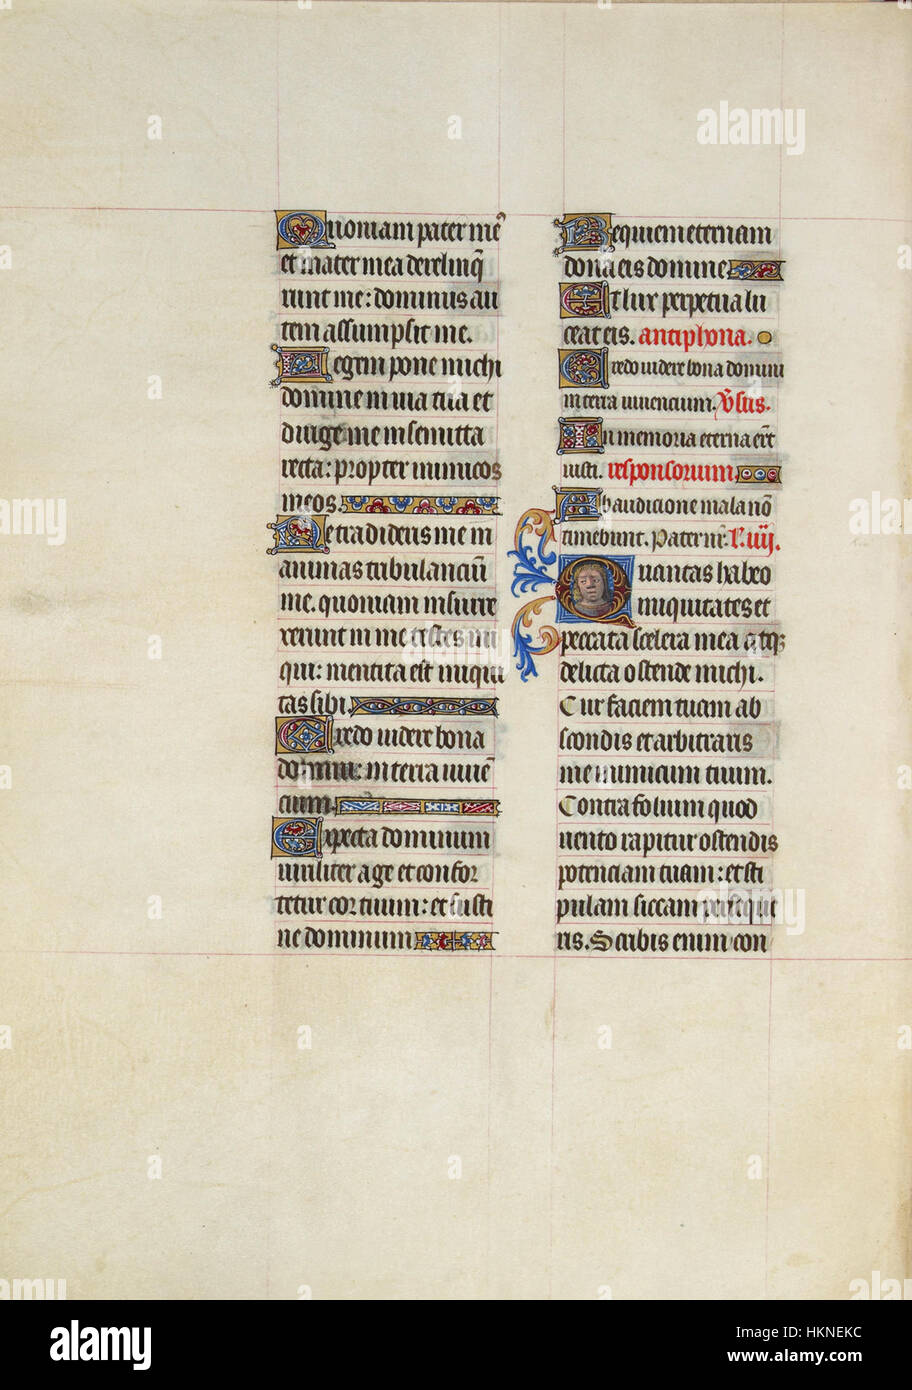 Quoniam pater me᷒
et mater mea derelinq̄
runt me: dominus au
tem assumpsit me.
Legem pone michi
domine in uia tua et
dirige me in semitta
recta: propter inimicos
meos.
Ne tradideris me in
animas tribulanciū
me. quoniam insurre
xerunt in me testes ini
qui: mentita est iniqui
tas sibi.
Credo uidere bona
domini: in terra uiuē
cium.
Expecta dominum
uiriliter age et confor
tetur cor tuum: et susti
ne dominum
Requiem eternam
dona eis domine.
Et lux perpetua lu
ceat eis. antiphona.
Credo uidere bona domini
in terra uiuencium. v̄sus.
In memoria eterna er̄t
iusti. responsorium.
Ab audicione mala nō
timebunt. Pater nr̄. l'. iiij.
Quantas habeo
iniquitates et
peccata scelera mea atq;
delicta ostende michi.
Cur faciem tuam ab
scondis et arbitraris
me inimicum tuum.
Contra folium quod
uento rapitur ostendis
potenciam tuam: et sti
pulam siccam persequi
ris. Scribis enim con
alamy
alamy
Image ID: HKNEKC
www.alamy.com